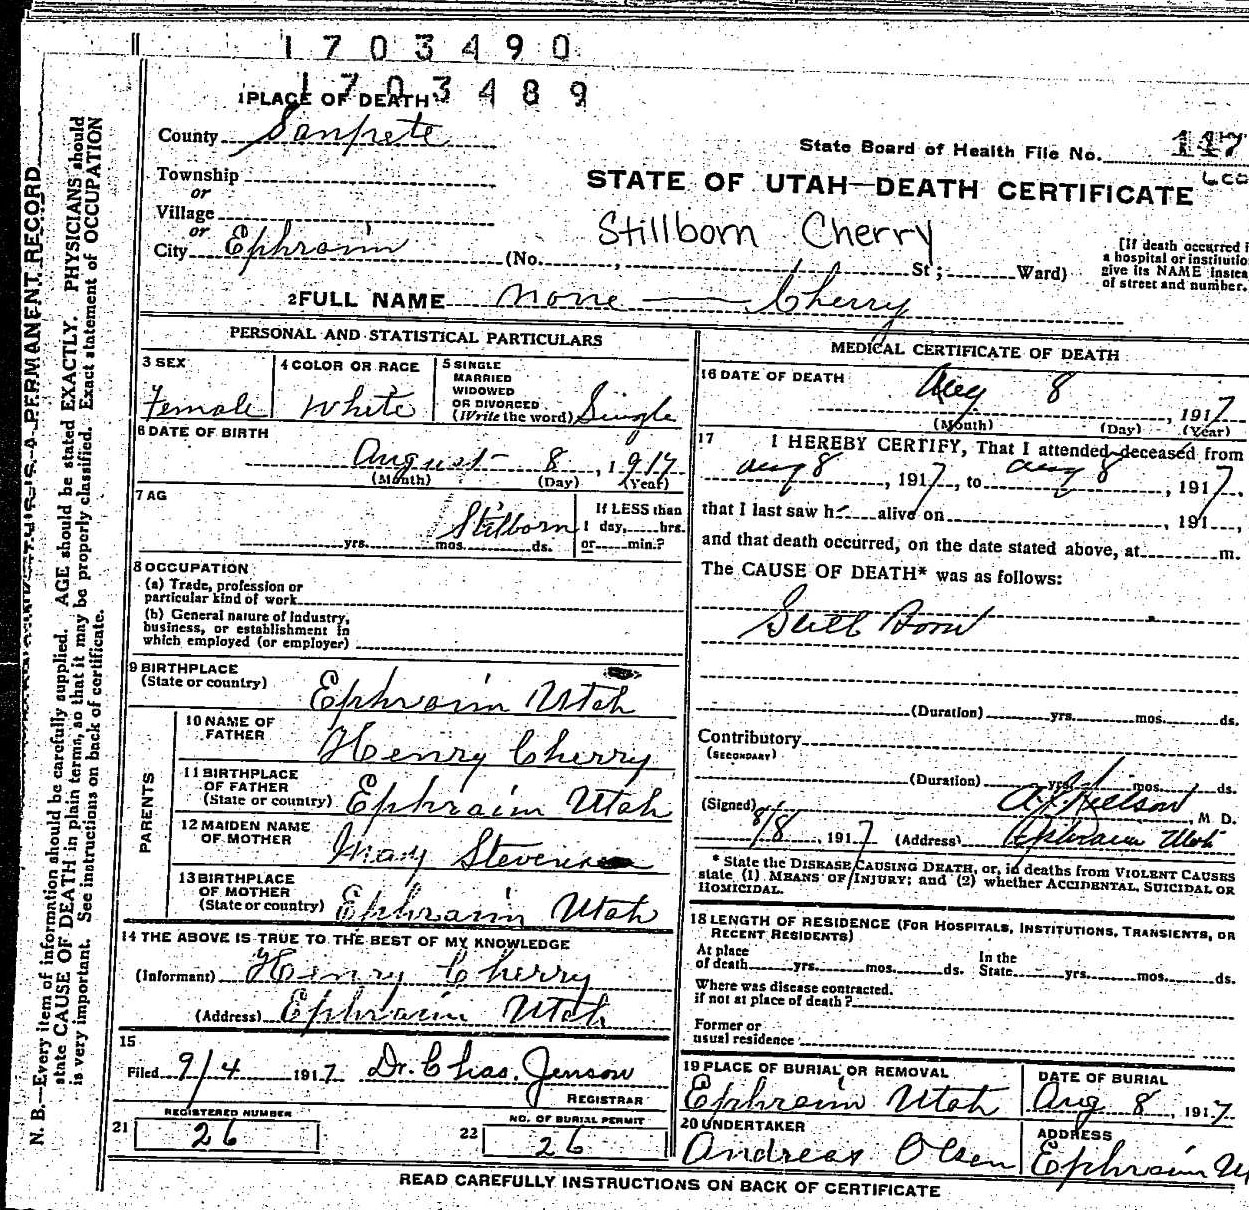 1703490
1703489
1 PLACE OF DEATH
County Sanpete
State Board of Health File No. 117
Township
or
STATE OF UTAH—DEATH CERTIFICATE
Village
or
Stillborn Cherry
City Ephraim (No. , St; Ward)
[If death occurred i
a hospital or institutio
give its NAME instea
of street and number.
2 FULL NAME none — Cherry
PERSONAL AND STATISTICAL PARTICULARS
3 SEX
Female
4 COLOR OR RACE
White
5 SINGLE
MARRIED
WIDOWED
OR DIVORCED
(Write the word) Single
6 DATE OF BIRTH
August 8, 1917
(Month) (Day) (Year)
7 AG
Stilborn
yrs. mos. ds.
If LESS than
1 day, hrs.
or min.?
8 OCCUPATION
(a) Trade, profession or
particular kind of work
(b) General nature of industry,
business, or establishment in
which employed (or employer)
9 BIRTHPLACE
(State or country) Ephraim Utah
PARENTS
10 NAME OF
FATHER Henry Cherry
11 BIRTHPLACE
OF FATHER
(State or country) Ephraim Utah
12 MAIDEN NAME
OF MOTHER May
13 BIRTHPLACE
OF MOTHER
(State or country) Ephraim Utah
14 THE ABOVE IS TRUE TO THE BEST OF MY KNOWLEDGE
(Informant) Henry Cherry
(Address) Ephraim Utah
15
Filed 9/4 1917 Dr. Chas. Jenson
REGISTRAR
REGISTERED NUMBER
21 26
NO. OF BURIAL PERMIT
22 26
MEDICAL CERTIFICATE OF DEATH
16 DATE OF DEATH
Aug 8, 1917
(Month) (Day) (Year)
17 I HEREBY CERTIFY, That I attended deceased from
Aug 8, 1917, to Aug 8, 1917,
that I last saw h alive on , 191 ,
and that death occurred, on the date stated above, at m.
The CAUSE OF DEATH* was as follows:
Still Born
(Duration) yrs. mos. ds.
Contributory
(SECONDARY)
(Duration) yrs. mos. ds.
(Signed) Nielson, M D.
8/8, 1917 (Address) Ephraim Utah
* State the DISEASE CAUSING DEATH, or, in deaths from VIOLENT CAUSES
state (1) MEANS OF INJURY; and (2) whether ACCIDENTAL, SUICIDAL OR
HOMICIDAL.
18 LENGTH OF RESIDENCE (FOR HOSPITALS, INSTITUTIONS, TRANSIENTS, OR
RECENT RESIDENTS)
At place
of death yrs. mos. ds.
In the
State yrs. mos. ds.
Where was disease contracted.
if not at place of death?
Former or
usual residence
19 PLACE OF BURIAL OR REMOVAL
Ephraim Utah
DATE OF BURIAL
Aug 8, 1917
20 UNDERTAKER
Andreas Olsen
ADDRESS
Ephraim U
READ CAREFULLY INSTRUCTIONS ON BACK OF CERTIFICATE
N. B.—Every item of information should be carefully supplied. AGE should be stated EXACTLY. PHYSICIANS should
state CAUSE OF DEATH in plain terms, so that it may be properly classified. Exact statement of OCCUPATION
is very important. See instructions on back of certificate.